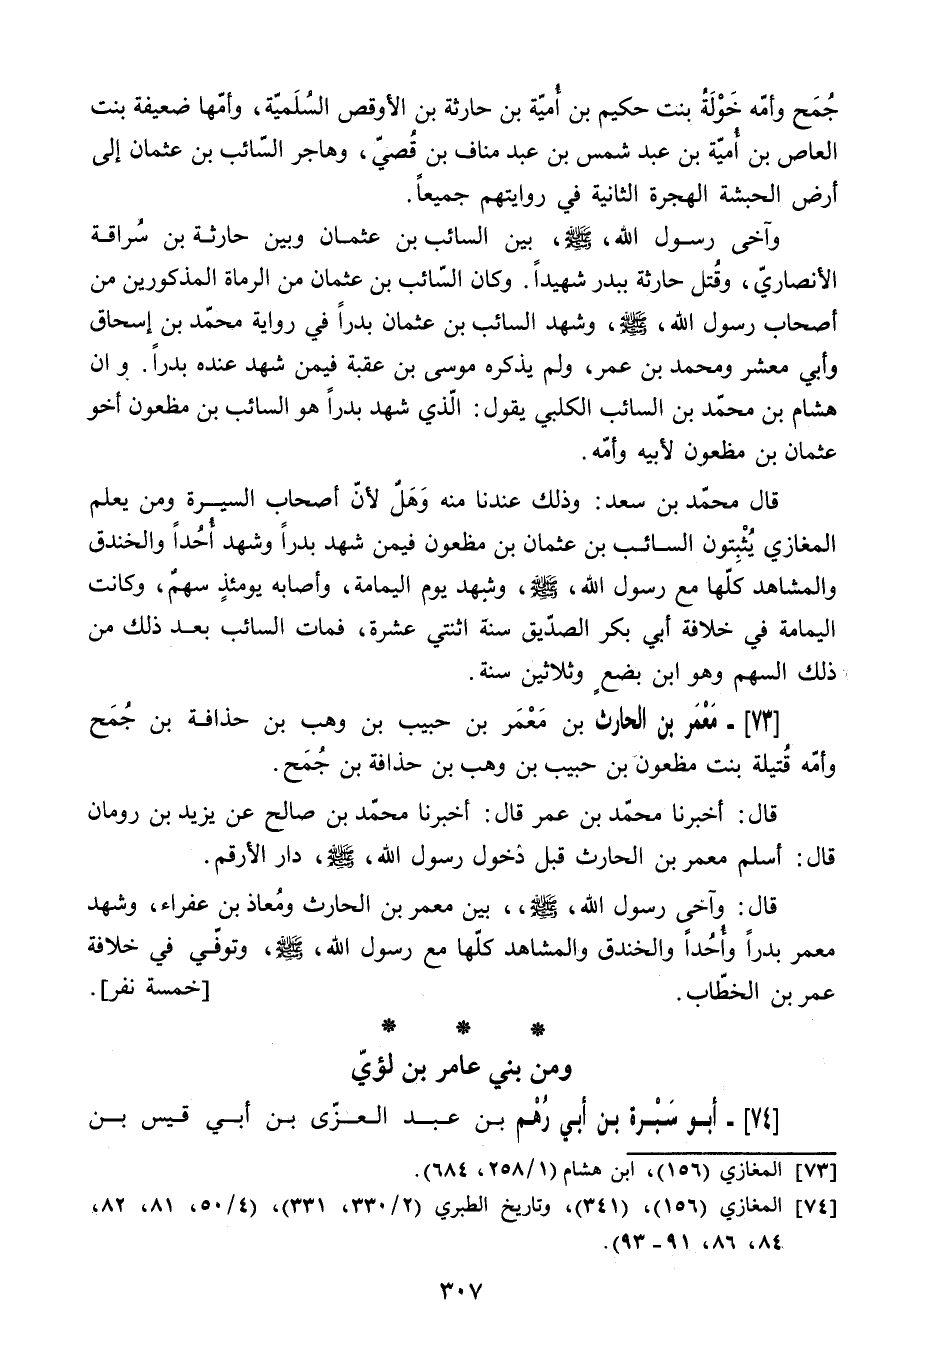 جُمَح وأمّه خَوْلَةُ بنت حكيم بن أُميّة بن حارثة بن الأوقص السُلَميّة، وأمّها ضعيفة بنت
العاص بن أُميّة بن عبد شمس بن عبد مناف بن قُصيّ، وهاجر السّائب بن عثمان إلى
أرض الحبشة الهجرة الثانية في روايتهم جميعاً.
وآخى رسول الله، ﷺ، بين السائب بن عثمان وبين حارثة بن سُراقة
الأنصاريّ، وقُتل حارثة ببدر شهيداً. وكان السّائب بن عثمان من الرماة المذكورين من
أصحاب رسول الله، ﷺ، وشهد السائب بن عثمان بدراً في رواية محمّد بن إسحاق
وأبي معشر ومحمد بن عمر، ولم يذكره موسى بن عقبة فيمن شهد عنده بدراً. و ان
هشام بن محمّد بن السائب الكلبي يقول: الّذي شهد بدراً هو السائب بن مظعون أخو
عثمان بن مظعون لأبيه وأمّه.
قال محمّد بن سعد: وذلك عندنا منه وَهَلٌ لأنّ أصحاب السيرة ومن يعلم
المغازي يُثْبِتون السائب بن عثمان بن مظعون فيمن شهد بدراً وشهد أُحُداً والخندق
والمشاهد كلّها مع رسول الله، ﷺ، وشهد يوم اليمامة، وأصابه يومئذٍ سهمٌ، وكانت
اليمامة في خلافة أبي بكر الصدّيق سنة اثنتي عشرة، فمات السائب بعد ذلك من
ذلك السهم وهو ابن بضعٍ وثلاثين سنة.
[٧٣] ـ مَعْمَر بن الحارث بن مَعْمَر بن حبيب بن وهب بن حذافة بن جُمَح
وأمّه قُتيلة بنت مظعون بن حبيب بن وهب بن حذافة بن جُمَح.
قال: أخبرنا محمّد بن عمر قال: أخبرنا محمّد بن صالح عن يزيد بن رومان
قال: أسلم معمر بن الحارث قبل دُخول رسول الله، ﷺ، دار الأرقم.
قال: وآخى رسول الله، ﷺ،، بين معمر بن الحارث ومُعاذ بن عفراء، وشهد
معمر بدراً وأُحُداً والخندق والمشاهد كلّها مع رسول الله، ﷺ، وتوفّي في خلافة
عمر بن الخطّاب. [خمسة نفر].
* * *
ومن بني عامر بن لؤيّ
[٧٤] ـ أبو سَبْرة بن أبي رُهْم بن عبد العزّى بن أبي قيس بن
[٧٣] المغازي (١٥٦)، ابن هشام (٢٥٨/١، ٦٨٤).
[٧٤] المغازي (١٥٦)، (٣٤١)، وتاريخ الطبري (٣٣٠/٢، ٣٣١)، (٥٠/٤، ٨١، ٨٢،
٨٤، ٨٦، ٩١ ـ ٩٣).
٣٠٧